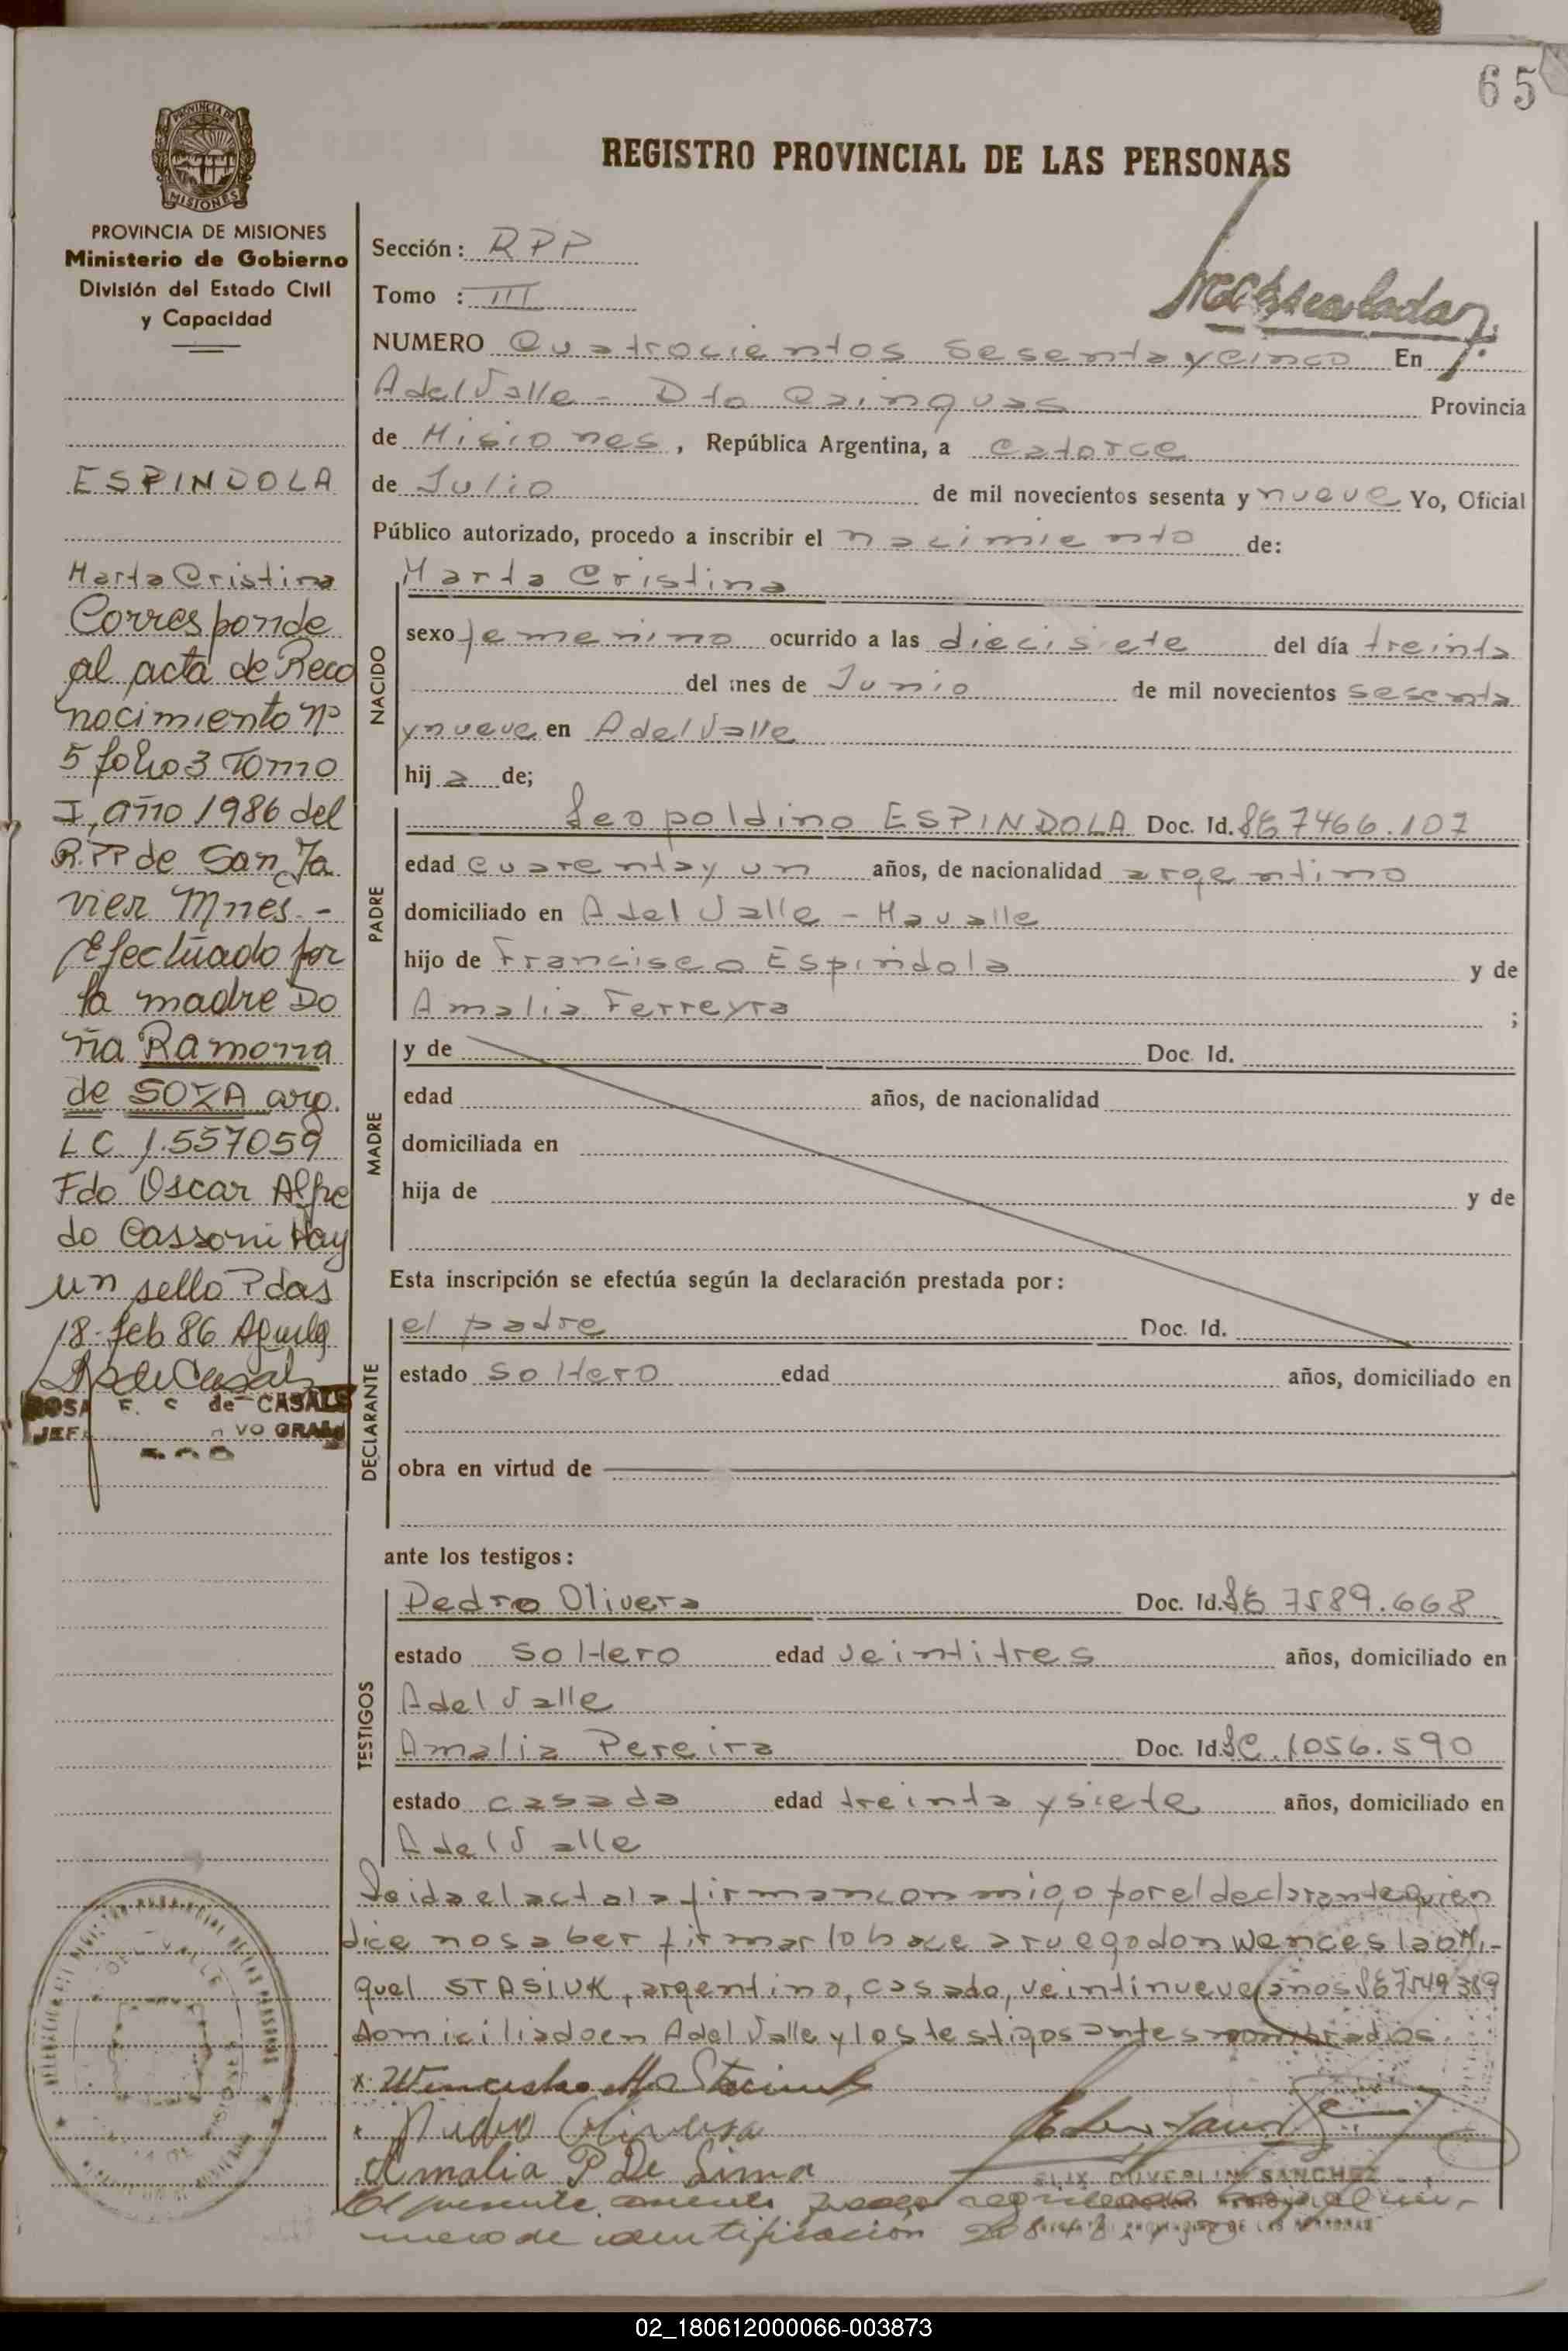 65
PROVINCIA DE MISIONES
Ministerio de Gobierno
División del Estado Civil
y Capacidad
ESPINDOLA
Marta Cristina
Corresponde
al acta de Reco
nocimiento nº
5 folio 3 Tomo
I, año 1986 del
R.PP de San Ja
vier Mnes.-
Efectuado por
la madre Do
ña Ramona
de SOZA arg.
LC 1.557059
Fdo Oscar Alfre
do Cassoni Hay
un sello Pdas
18-feb 86
ROSA F. C de CASALS
JEF VO GRAL
REGISTRO PROVINCIAL DE LAS PERSONAS
Sección: RPP
Tomo : III
NUMERO Cuatrocientos sesenta y cinco En
A del Valle - Dto Cainguas Provincia
de Misiones, República Argentina, a catorce
de Julio de mil novecientos sesenta y nueve Yo, Oficial
Público autorizado, procedo a inscribir el nacimiento de:
NACIDO
Marta Cristina
sexo femenino ocurrido a las diecisiete del día treinta
del mes de Junio de mil novecientos sesenta
y nueve en A del Valle
hij a de;
PADRE
Leopoldino ESPINDOLA Doc. Id. LE 7466.107
edad cuarenta y un años, de nacionalidad argentino
domiciliado en A del Valle - Mavalle
hijo de Francisco Espindola y de
Amalia Ferreyra ;
MADRE
y de Doc. Id.
edad años, de nacionalidad
domiciliada en
hija de y de
Esta inscripción se efectúa según la declaración prestada por:
DECLARANTE
el padre Doc. Id.
estado soltero edad años, domiciliado en
obra en virtud de
ante los testigos:
TESTIGOS
Pedro Olivera Doc. Id. LE 7589.668
estado soltero edad veintitres años, domiciliado en
A del Valle
Amalia Pereira Doc. Id. LC. 1056.590
estado casada edad treinta y siete años, domiciliado en
A del Valle
Leida el acta la firman conmigo por el declarante quien
dice no saber firmar lo hace a ruego don Wenceslao Mi-
guel STASIUK, argentino, casado, veintinueve años LE 7549389
domiciliado en A del Valle y los testigos antes nombrados.
x Wenceslao M Stasiuk
x Pedro Olivera
Amalia P De Lima
SANCHEZ
El presente
mero de identificación
02_180612000066-003873